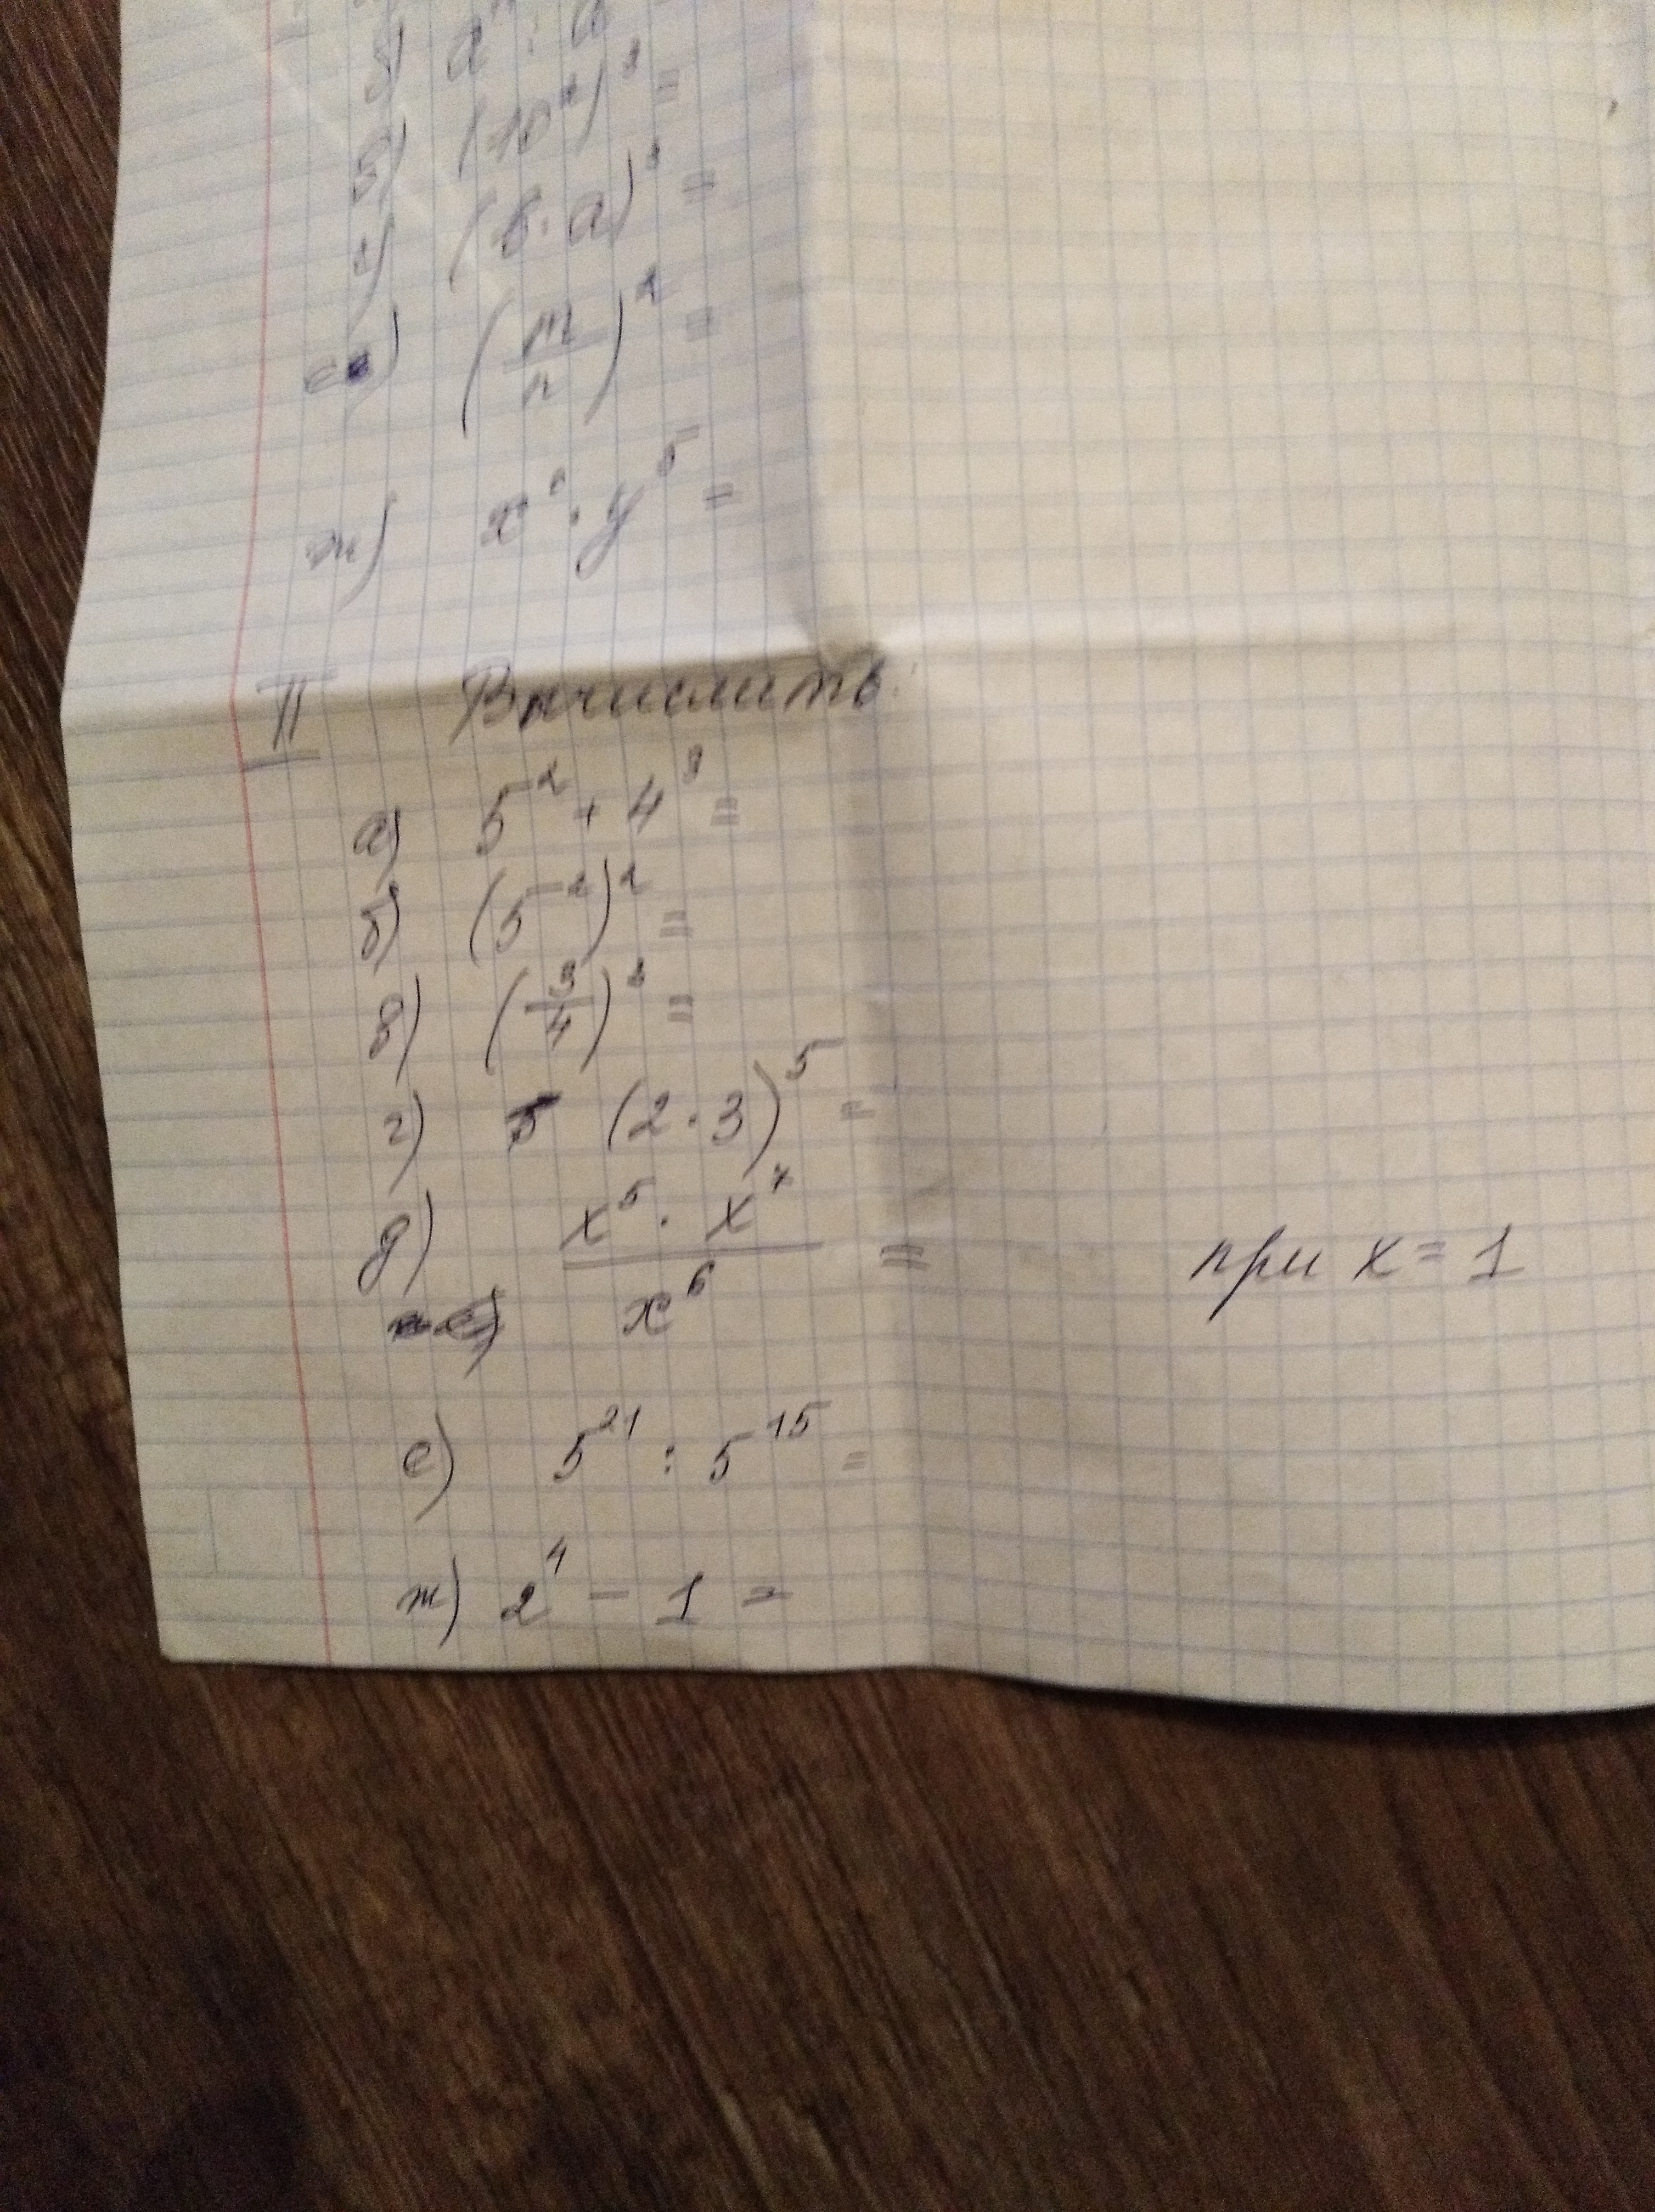 (10²)² =
г) (b · a)³ =
е) (m/n)² =
ж) x⁶ · y⁵ =
II Вычислить:
а) 5² + 4³ =
б) (5²)² =
в) (3/4)³ =
г) (2 · 3)⁵ =
д) x⁵ · x⁷ / x⁶ = при x = 1
е) 5²¹ : 5¹⁵ =
ж) 2⁴ - 1 =